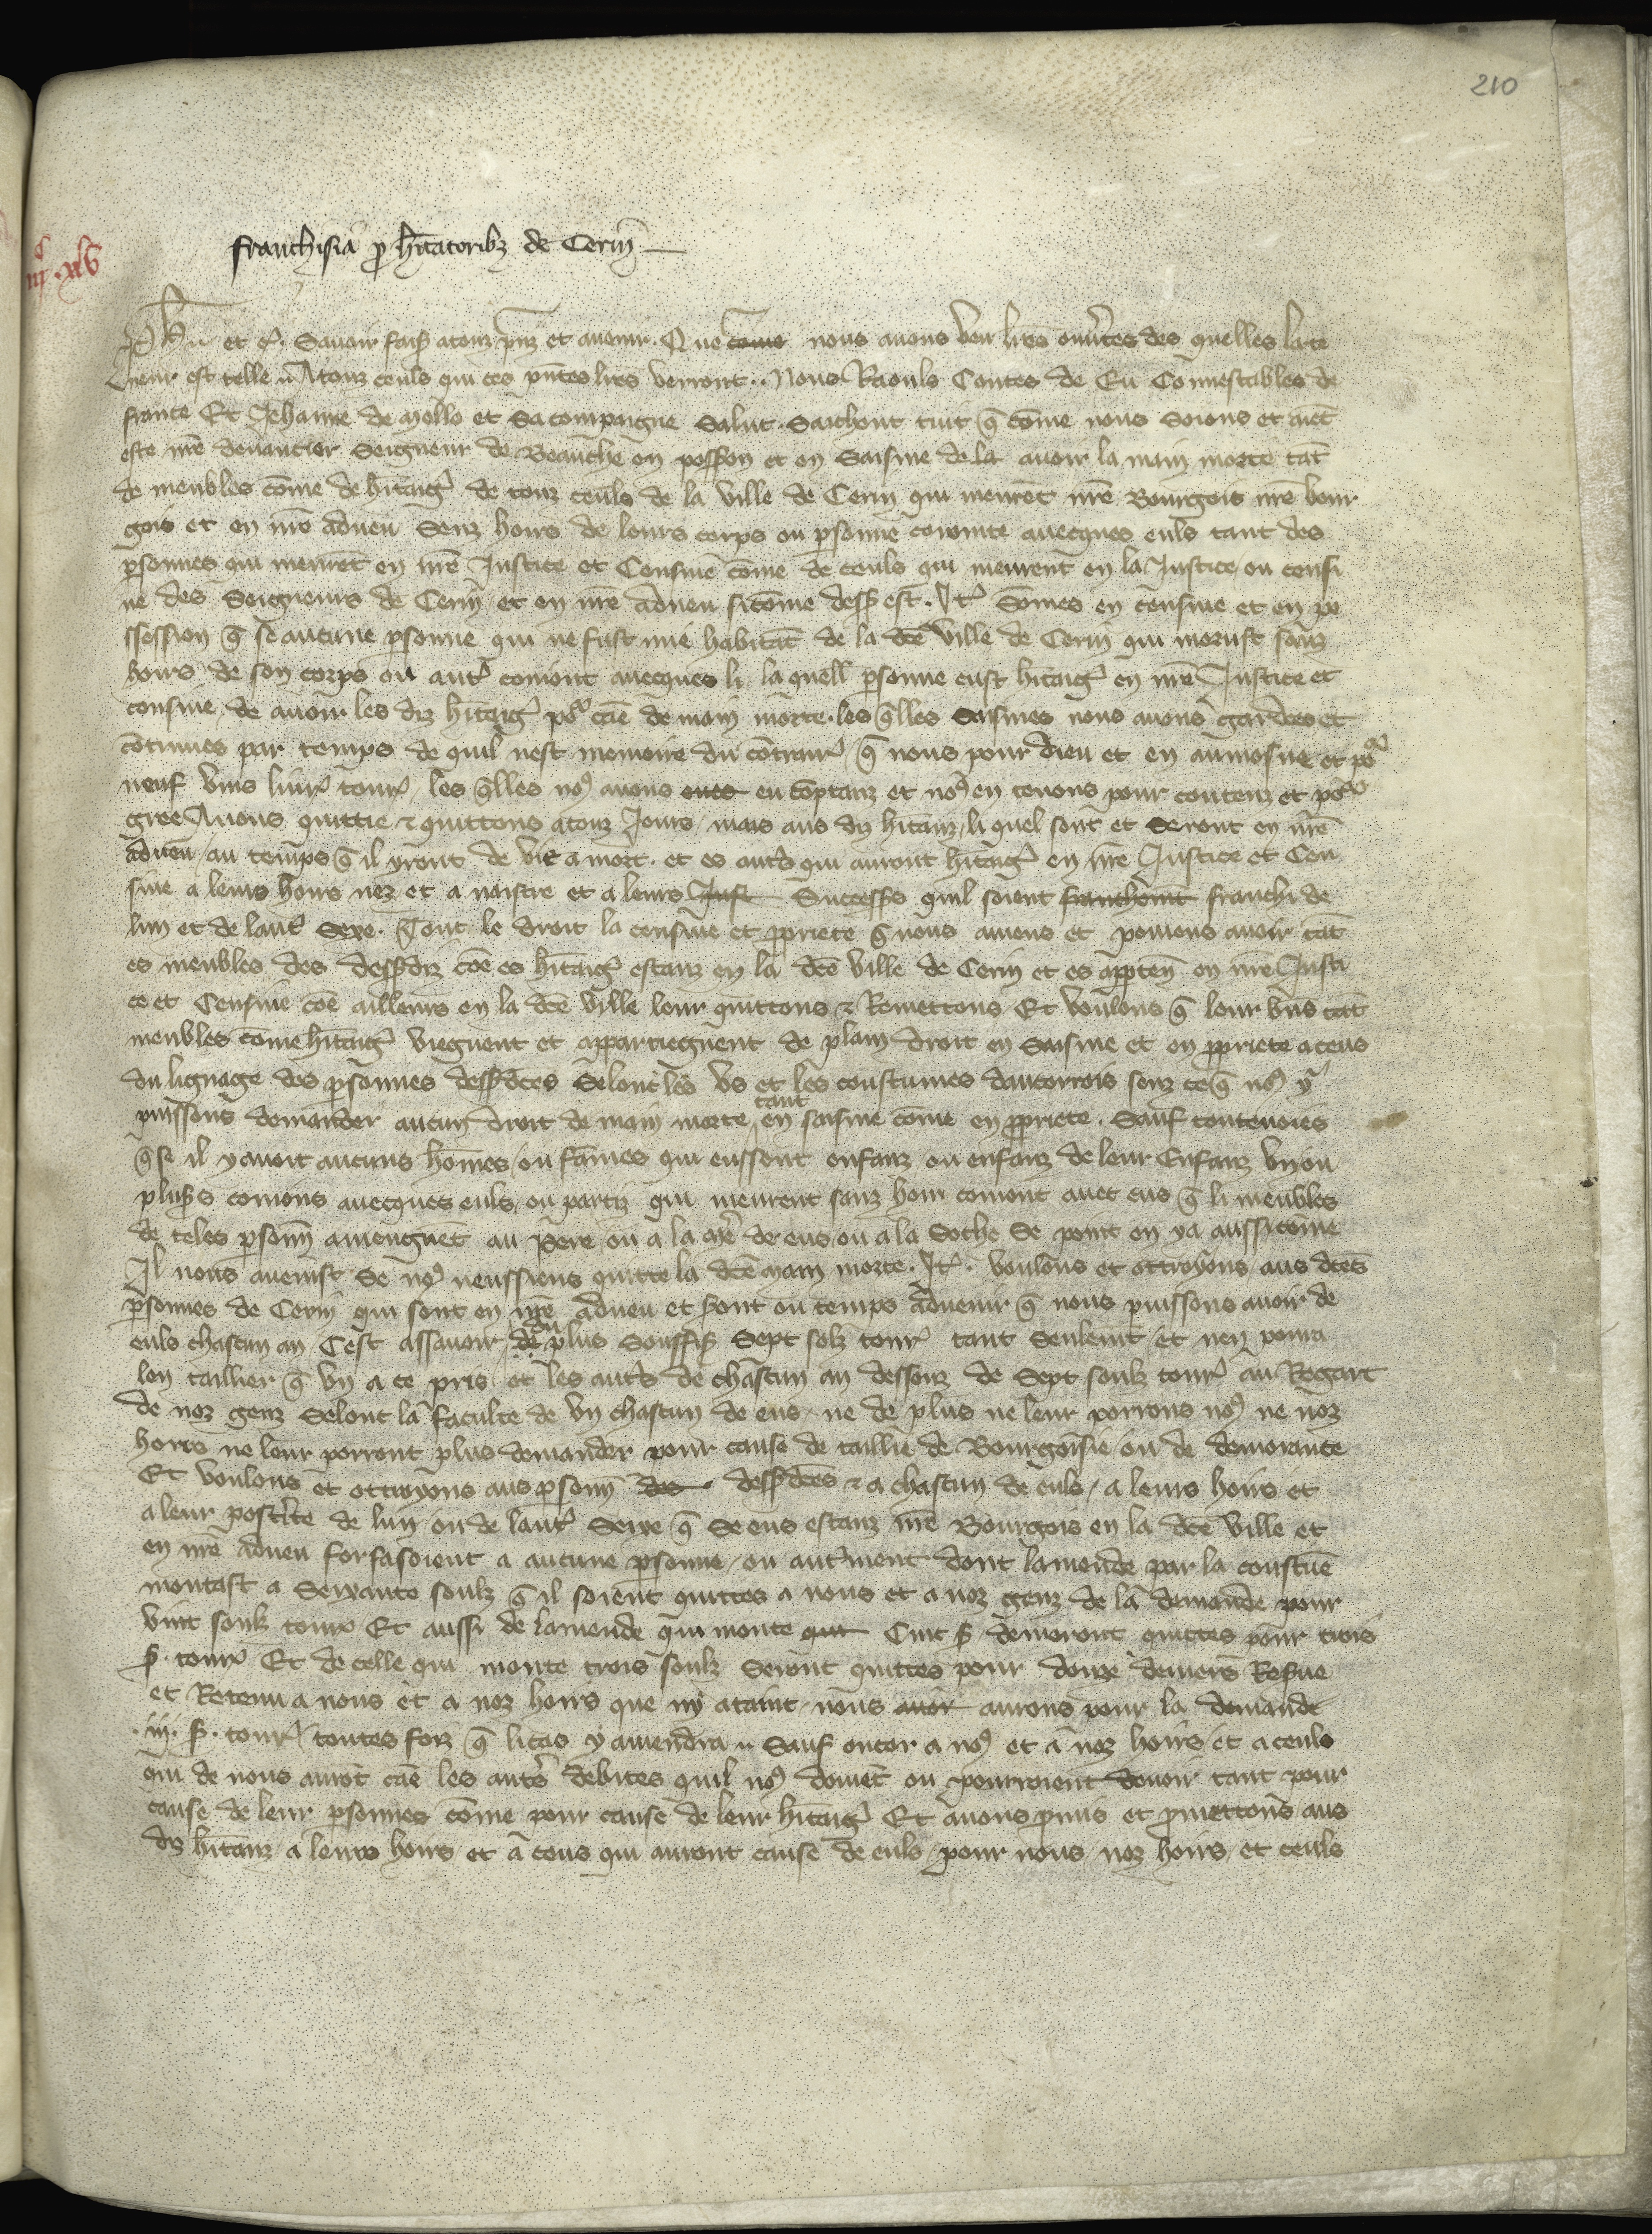 210
franchisia p hitatoribz de Cerin
et c. Savoir fais a touz pnz et avenir. Que come nous avons veu lres ouvtes des quelles la te
neur est telle. A touz ceuls qui ces pntes lres verront.. Nous Raouls Contes de Eu Connestables de
france Et Jehanne de Mello sa compaigne Salut. Saichent tuit q come nous soions et aiet
este nre devancier Seigneur de Beauche en possion et en saisine de la avoir la main morte tat
de meubles come de hitaig de touz ceuls de la ville de Cerin qui meuret nre Bourgois nre bour
gois et en nre adveu senz hoirs de leurs corps ou psonne comune avecques euls tant des
psonnes qui meuret en nre Justice et Censive come de ceuls qui meurent en la Justice ou censi
ve des Seigneurs de Cerin et en nre adveu si come dess est. It Somes en censive et en po
ssession q se aucune psonne qui ne fust mie habitat de la dce ville de Cerin qui morust sanz
hoirs de son corps ou aut comont avecques li la quell psonne eust hitaig en nre Justice et
censive de avoir les diz hitaig po cae de main morte. les qlles saisines nous avons gardees et
continues par temps de quil nest memoire du contrair q nous pour dieu et en aumosne et po
neuf vins livr tour les qlles no avons eues en comptanz et no en tenons pour contenz et po
gree Avons quittie & quittons a touz Jours mais aus diz hitanz li quel sont et seront en nre
adveu au temps q il yront de vie a mort. et es auts qui auront hitaig en nre Justice et Cen
sive a leurs hoirs nez et a naistre et a leurs Just Success quil soient franchemt franchi de
lun et de laut sexe. Tout le droit la censive et ppriete q nous aviens et poviens avoir tat
es meubles des dessdiz coe es hitaig estanz en la dce ville de Cerin et es appten en nre Justi
ce et Censive coe ailleurs en la dce ville leur quittons & Remettons Et voulons q leur bns tat
meubles come hitaig viegnent et appartiegnent de plain droit en saisine et en ppriete a ceus
du lignage des psonnes dessdces selont les us et les coustumes dautorrois senz ce q no y
puissons demander aucun droit de main morte tant en saisine come en ppriete. Sauf toutevoies
q se il y avoit aucuns homes ou fames qui eussent enfanz ou enfanz de leur Enfanz un ou
pluss comons avecques euls ou partiz qui meurent sanz hoir comont avec eus q li meubles
de teles psonn aviengnet au pere ou a la me de eus ou a la Soche se point en ya aussi come
Il nous avenist se no neussiens quitte la dce main morte. It. voulons et ottroyons aus dces
psonnes de Cerin qui sont en nre adveu et sont ou temps advenir q nous puissons avoir de
euls chascun an Cest assavoir de du plus souffis Sept solz tour tant seulemt et nen pourra
len taillier q un a ce pris et les auts de chascun an dessouz de Sept soulz tour au Regart
de noz genz selont la faculte de un chascun de eus ne de plus ne leur porrons no ne noz
hoirs ne leur porront plus demander pour cause de taillie de Bourgoisie ou de demorance
Et voulons et ottroyons aus psonn des dessdces & a chascun de euls a leurs hoirs et
a leur postte de lun ou de laut sexe q se eus estanz nre Bourgois en la dce ville et
en nre adveu forfasoient a aucune psonne ou autment dont lamende par la coustue
montast a Seixante soulz q il soient quittes a nous et a noz genz de la demande pour
vint soulz tour Et aussi de lamende qui monte qui Cinc s demoront quittes pour trois
s. tour Et de celle qui monte trois soulz seront quittes pour douze deniers Resve
et Retenu a nous et a noz hoirs que ny ataint nous avoir aurons pour la demande
.iij. s. tour toutes foiz q li cas y avendra. Sauf encor a no et a noz hoirs et a ceuls
qui de nous aurot cae les auts debites quil no doivet ou pourroient devoir tant pour
cause de leur psonnes come pour cause de leur hitaig Et avons pmis et pmettons aus
diz hitanz a leurs hoirs et a ceus qui auront cause de euls pour nous noz hoirs et ceuls